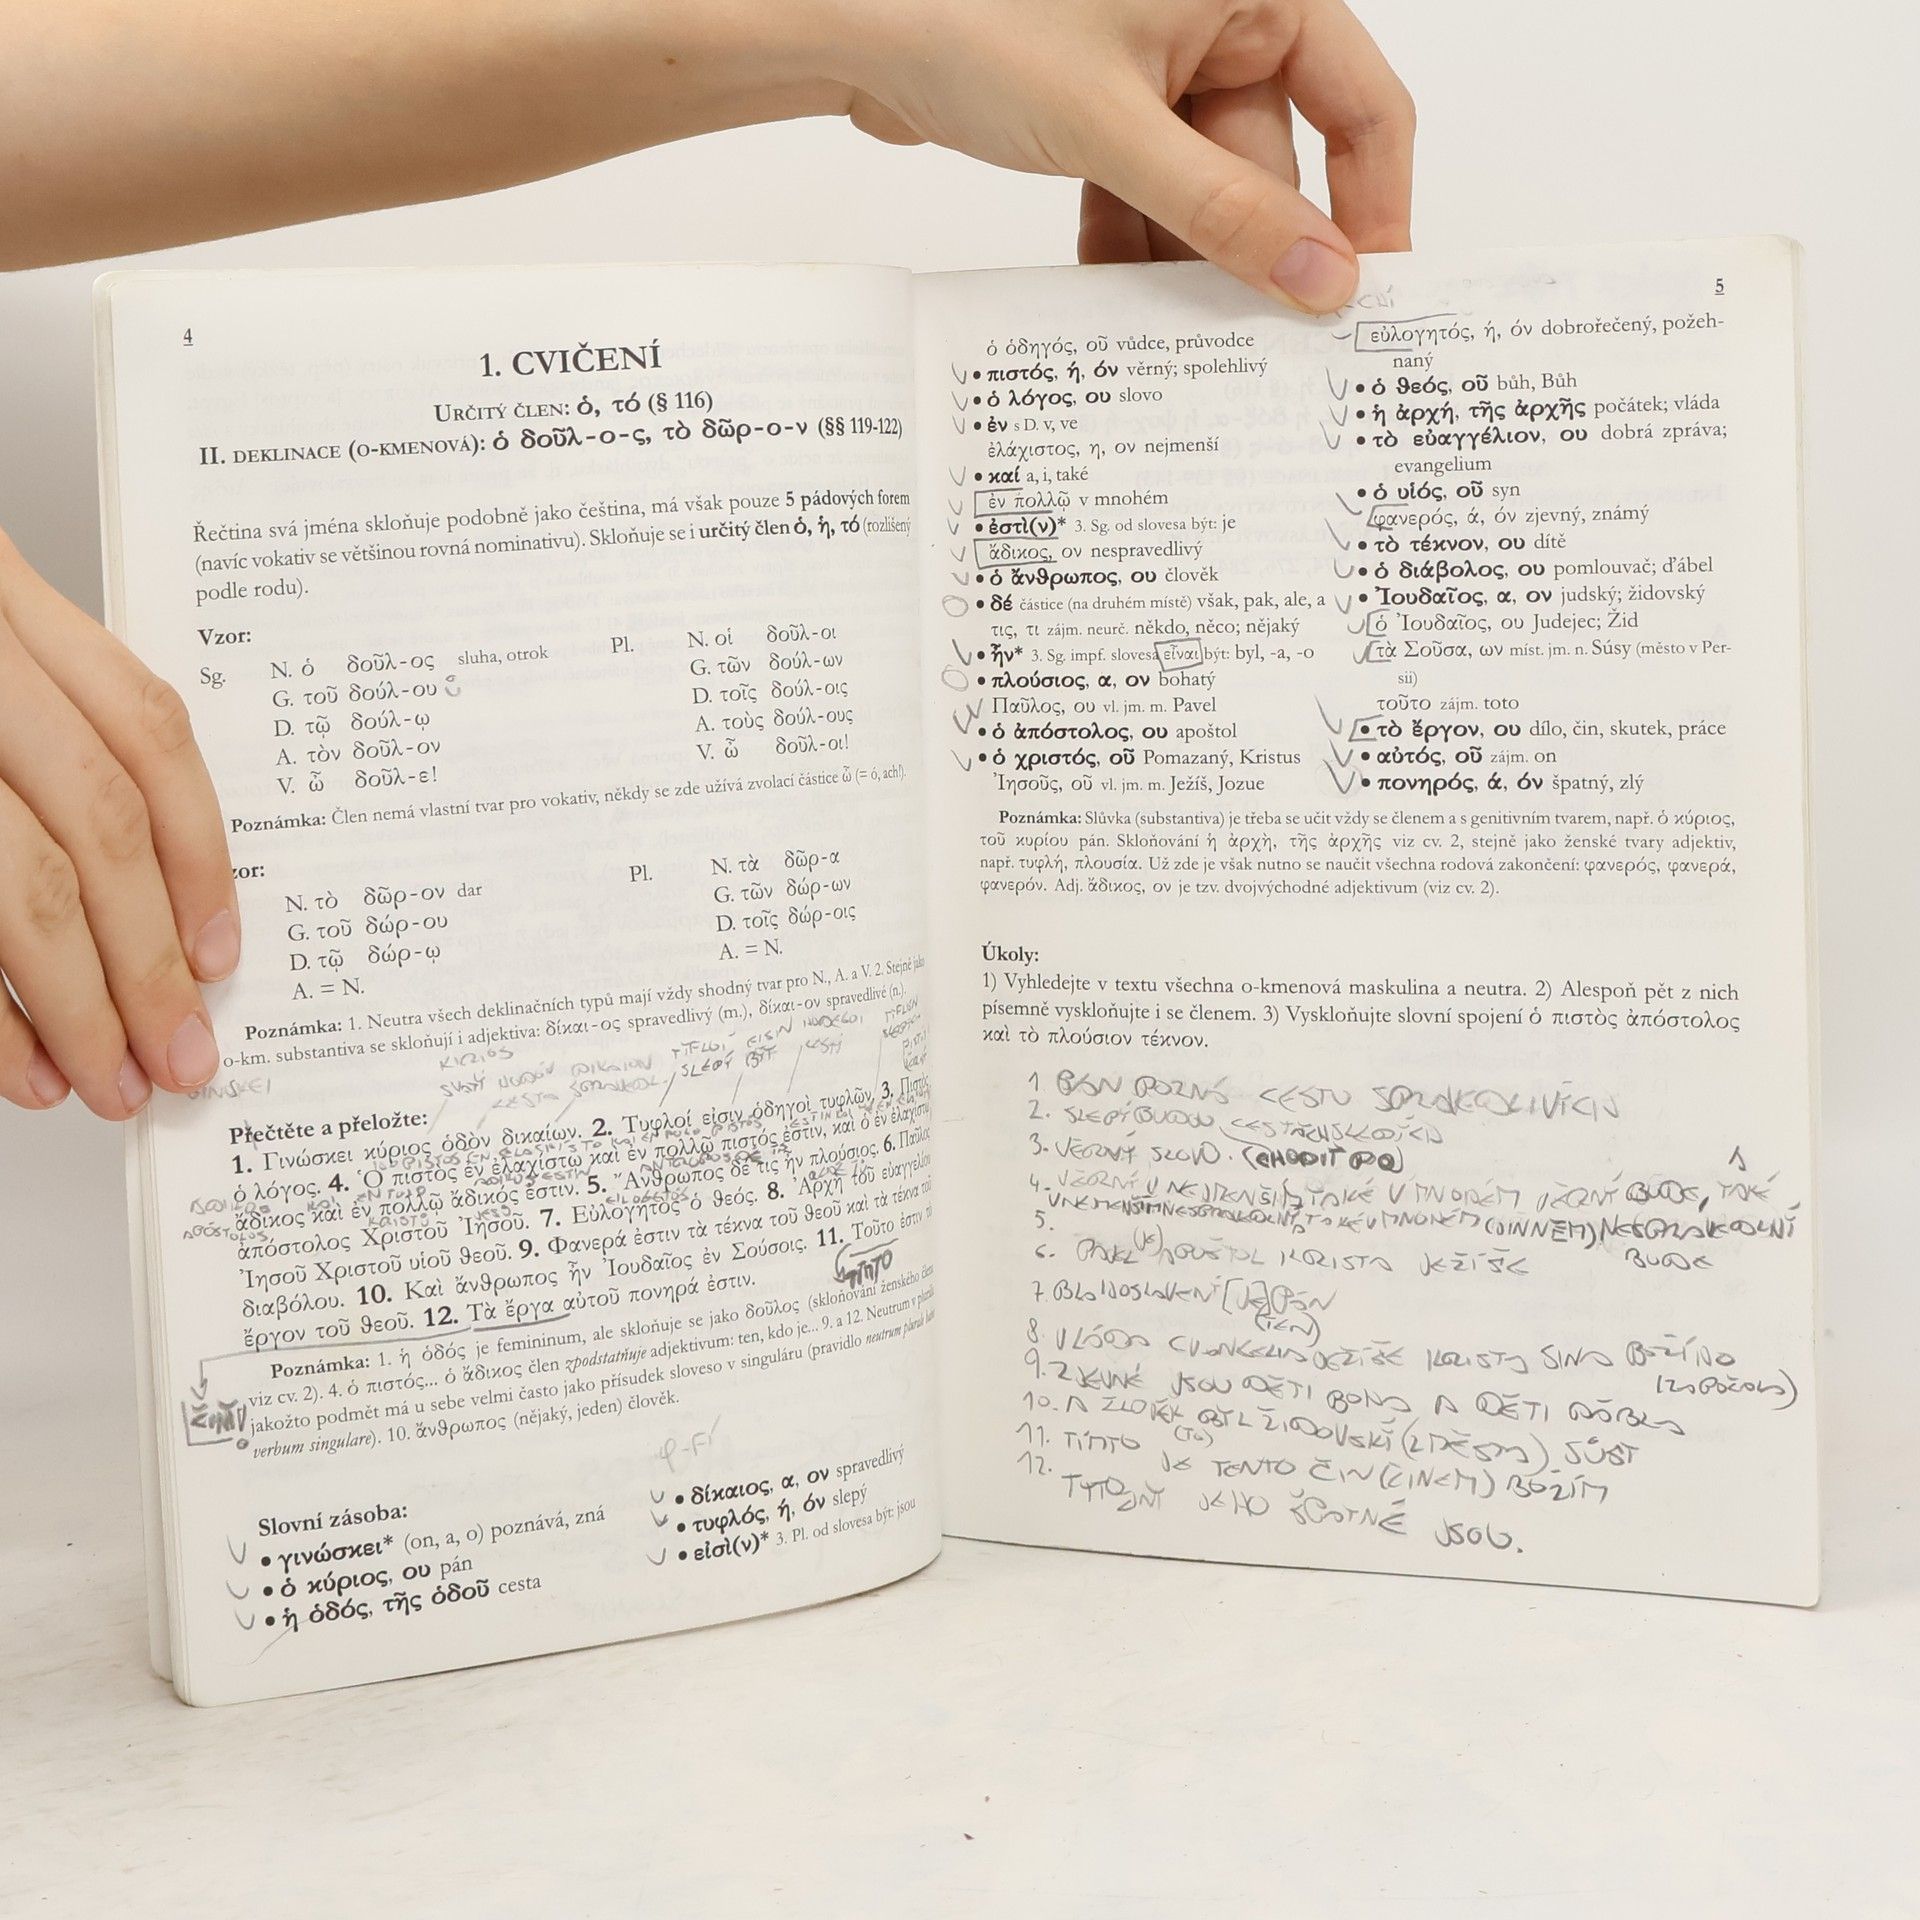 4
1. CVIČENÍ
URČITÝ ČLEN: ὁ, τό (§ 116)
II. DEKLINACE (O-KMENOVÁ): ὁ δοῦλ-ο-ς, τὸ δῶρ-ο-ν (§§ 119-122)
Řečtina svá jména skloňuje podobně jako čeština, má však pouze 5 pádových forem
(navíc vokativ se většinou rovná nominativu). Skloňuje se i určitý člen ὁ, ἡ, τό (rozlišený
podle rodu).
Vzor:
Sg. N. ὁ δοῦλ-ος sluha, otrok Pl. N. οἱ δοῦλ-οι
G. τοῦ δούλ-ου G. τῶν δούλ-ων
D. τῷ δούλ-ῳ D. τοῖς δούλ-οις
A. τὸν δοῦλ-ον A. τοὺς δούλ-ους
V. ὦ δοῦλ-ε! V. ὦ δοῦλ-οι!
Poznámka: Člen nemá vlastní tvar pro vokativ, někdy se zde užívá zvolací částice ὦ (= ó, ach!).
zor:
N. τὸ δῶρ-ον dar Pl. N. τὰ δῶρ-α
G. τοῦ δώρ-ου G. τῶν δώρ-ων
D. τῷ δώρ-ῳ D. τοῖς δώρ-οις
A. = N. A. = N.
Poznámka: 1. Neutra všech deklinačních typů mají vždy shodný tvar pro N., A. a V. 2. Stejně jako
o-km. substantiva se skloňují i adjektiva: δίκαι-ος spravedlivý (m.), δίκαι-ον spravedlivé (n.).
Přečtěte a přeložte:
1. Γινώσκει κύριος ὁδὸν δικαίων. 2. Τυφλοί εἰσιν ὁδηγοὶ τυφλῶν. 3. Πιστὸς
ὁ λόγος. 4. Ὁ πιστὸς ἐν ἐλαχίστῳ καὶ ἐν πολλῷ πιστός ἐστιν, καὶ ὁ ἐν ἐλαχίστῳ
ἄδικος καὶ ἐν πολλῷ ἄδικός ἐστιν. 5. Ἄνθρωπος δέ τις ἦν πλούσιος. 6. Παῦλος
ἀπόστολος Χριστοῦ Ἰησοῦ. 7. Εὐλογητὸς ὁ θεός. 8. Ἀρχὴ τοῦ εὐαγγελίου
Ἰησοῦ Χριστοῦ υἱοῦ θεοῦ. 9. Φανερά ἐστιν τὰ τέκνα τοῦ θεοῦ καὶ τὰ τέκνα τοῦ
διαβόλου. 10. Καὶ ἄνθρωπος ἦν Ἰουδαῖος ἐν Σούσοις. 11. Τοῦτο ἐστιν τὸ
ἔργον τοῦ θεοῦ. 12. Τὰ ἔργα αὐτοῦ πονηρά ἐστιν.
TÍMTO
Poznámka: 1. ἡ ὁδός je femininum, ale skloňuje se jako δοῦλος (skloňování ženského členu
viz cv. 2). 4. ὁ πιστὸς... ὁ ἄδικος člen zpodstatňuje adjektivum: ten, kdo je... 9. a 12. Neutrum v plurálu
jakožto podmět má u sebe velmi často jako přísudek sloveso v singuláru (pravidlo neutrum plurale habet
verbum singulare). 10. ἄνθρωπος (nějaký, jeden) člověk.
φ-F
Slovní zásoba:
• γινώσκει* (on, a, o) poznává, zná
• ὁ κύριος, ου pán
• ἡ ὁδός, τῆς ὁδοῦ cesta
• δίκαιος, α, ον spravedlivý
• τυφλός, ή, όν slepý
• εἰσὶ(ν)* 3. Pl. od slovesa být: jsou
5
ὁ ὁδηγός, οῦ vůdce, průvodce
• πιστός, ή, όν věrný; spolehlivý
• ὁ λόγος, ου slovo
• ἐν s D. v, ve
ἐλάχιστος, η, ον nejmenší
• καί a, i, také
ἐν πολλῷ v mnohém
• ἐστὶ(ν)* 3. Sg. od slovesa být: je
ἄδικος, ον nespravedlivý
• ὁ ἄνθρωπος, ου člověk
• δέ částice (na druhém místě) však, pak, ale, a
τις, τι zájm. neurč. někdo, něco; nějaký
• ἦν* 3. Sg. impf. slovesa εἶναι být: byl, -a, -o
• πλούσιος, α, ον bohatý
Παῦλος, ου vl. jm. m. Pavel
• ὁ ἀπόστολος, ου apoštol
• ὁ χριστός, οῦ Pomazaný, Kristus
Ἰησοῦς, οῦ vl. jm. m. Ježíš, Jozue
εὐλογητός, ή, όν dobrořečený, požeh-
naný
• ὁ θεός, οῦ bůh, Bůh
• ἡ ἀρχή, τῆς ἀρχῆς počátek; vláda
• τὸ εὐαγγέλιον, ου dobrá zpráva;
evangelium
• ὁ υἱός, οῦ syn
φανερός, ά, όν zjevný, známý
• τὸ τέκνον, ου dítě
• ὁ διάβολος, ου pomlouvač; ďábel
• Ἰουδαῖος, α, ον judský; židovský
ὁ Ἰουδαῖος, ου Judejec; Žid
τὰ Σοῦσα, ων míst. jm. n. Súsy (město v Per-
sii)
τοῦτο zájm. toto
• τὸ ἔργον, ου dílo, čin, skutek, práce
• αὐτός, οῦ zájm. on
• πονηρός, ά, όν špatný, zlý
Poznámka: Slůvka (substantiva) je třeba se učit vždy se členem a s genitivním tvarem, např. ὁ κύριος,
τοῦ κυρίου pán. Skloňování ἡ ἀρχὴ, τῆς ἀρχῆς viz cv. 2, stejně jako ženské tvary adjektiv,
např. τυφλή, πλουσία. Už zde je však nutno se naučit všechna rodová zakončení: φανερός, φανερά,
φανερόν. Adj. ἄδικος, ον je tzv. dvojvýchodné adjektivum (viz cv. 2).
Úkoly:
1) Vyhledejte v textu všechna o-kmenová maskulina a neutra. 2) Alespoň pět z nich
písemně vyskloňujte i se členem. 3) Vyskloňujte slovní spojení ὁ πιστὸς ἀπόστολος
καὶ τὸ πλούσιον τέκνον.
1 PÁN POZNÁ CESTU SPRAVEDLIVÝCH
2. SLEPÍ BUDOU
3. VĚRNÝ SLOVU. (CHODIT PO)
4. VĚRNÝ V NEJMENŠÍM TAKÉ V MNOHÉM VĚRNÝ BUDE, TAKÉ
5.
6. PAVEL (JE) APOŠTOL KRISTA JEŽÍŠE BUDE
7. BLAHOSLAVENÝ [JE] PÁN
8. VLÁDA EVANGELIA JEŽÍŠE KRISTA SYNA BOŽÍHO
9. ZJEVNÉ JSOU DĚTI BOHA A DĚTI ĎÁBLA
10. A ČLOVĚK BYL ŽIDOVSKÝ (Z MĚSTA) SÚS
11. TÍMTO (TO) JE TENTO ČIN (ČINEM) BOŽÍM
12. TYTO JEHO ŠPATNÉ JSOU.